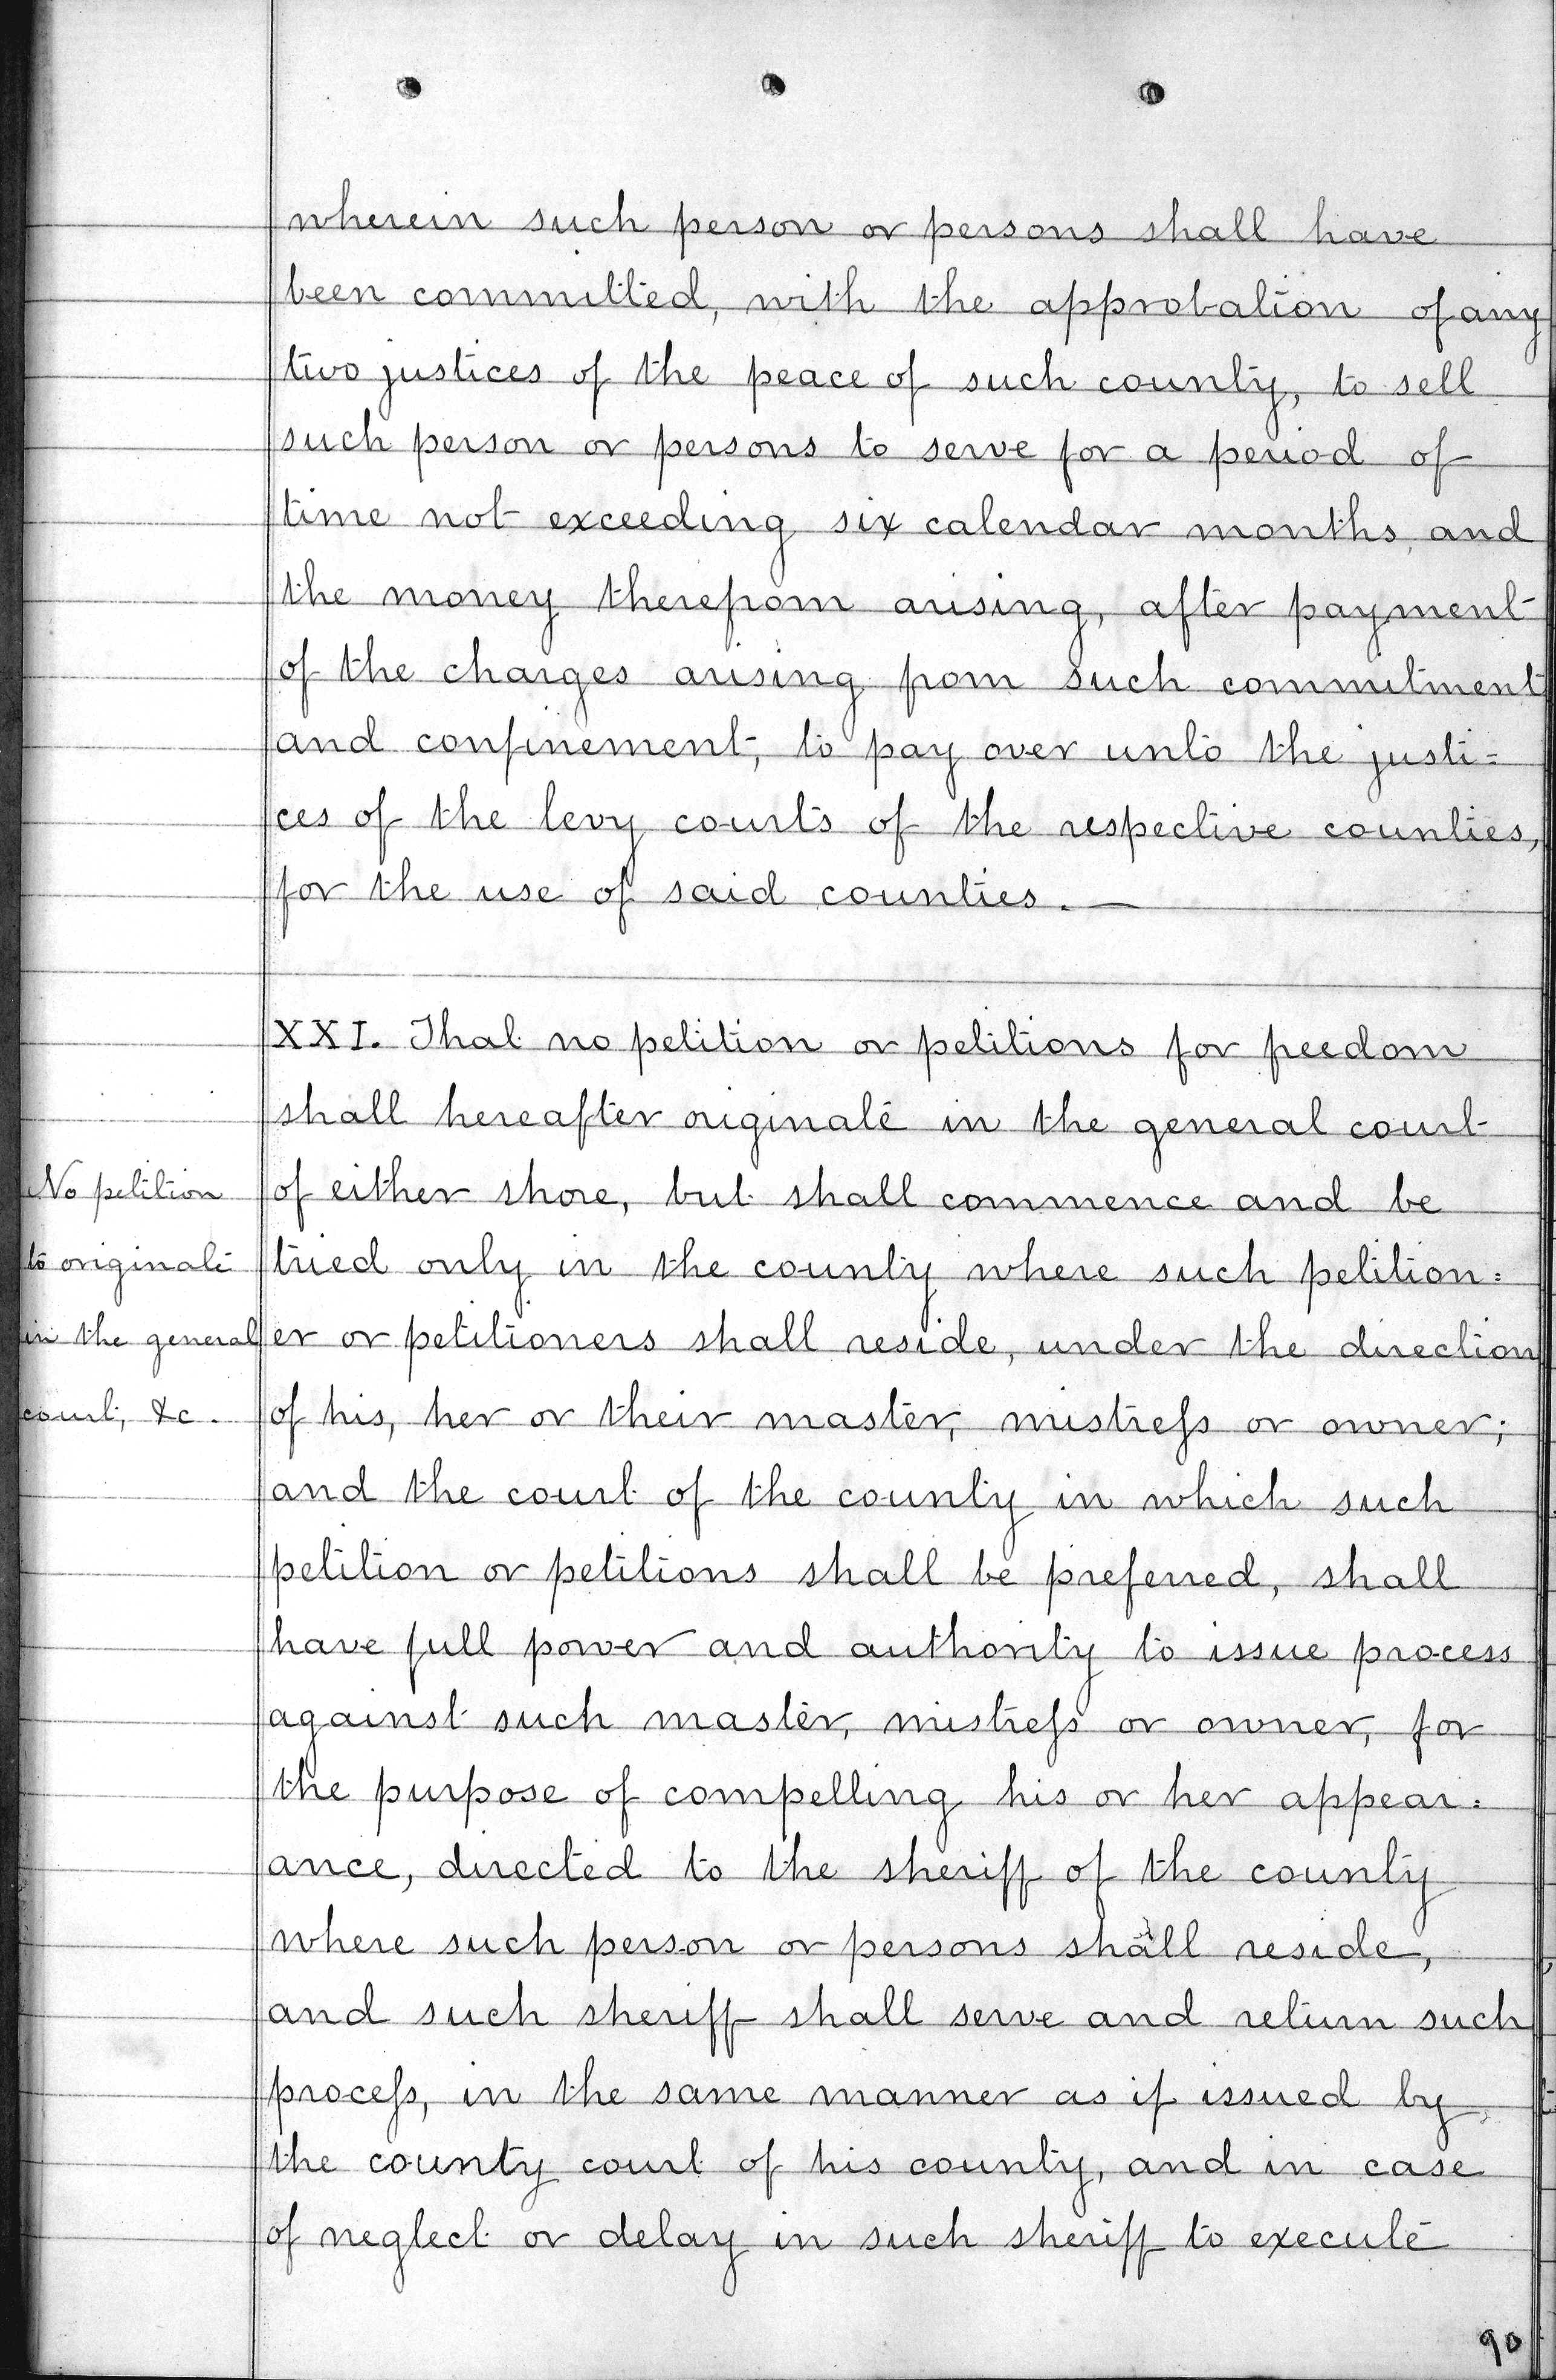 wherein such person or persons shall have
been committed, with the approbation of any
two justices of the peace of such county, to sell
such person or persons to serve for a period of
time not exceeding six calendar months, and
the money therefrom arising, after payment
of the charges arising from such commitment
and confinement, to pay over unto the justi=
ces of the levy courts of the respective counties,
for the use of said counties. —
XXI. That no petition or petitions for freedom
shall hereafter originate in the general court
of either shore, but shall commence and be
tried only in the county where such petition=
er or petitioners shall reside, under the direction
of his, her or their master, mistreſs or owner;
and the court of the county in which such
petition or petitions shall be preferred, shall
have full power and authority to issue process
against such master, mistreſs or owner, for
the purpose of compelling his or her appear=
ance, directed to the sheriff of the county
where such person or persons shall reside,
and such sheriff shall serve and return such
proceſs, in the same manner as if issued by
the county court of his county, and in case
of neglect or delay in such sheriff to execute
No petition
to originate
in the general
court, &c.
90